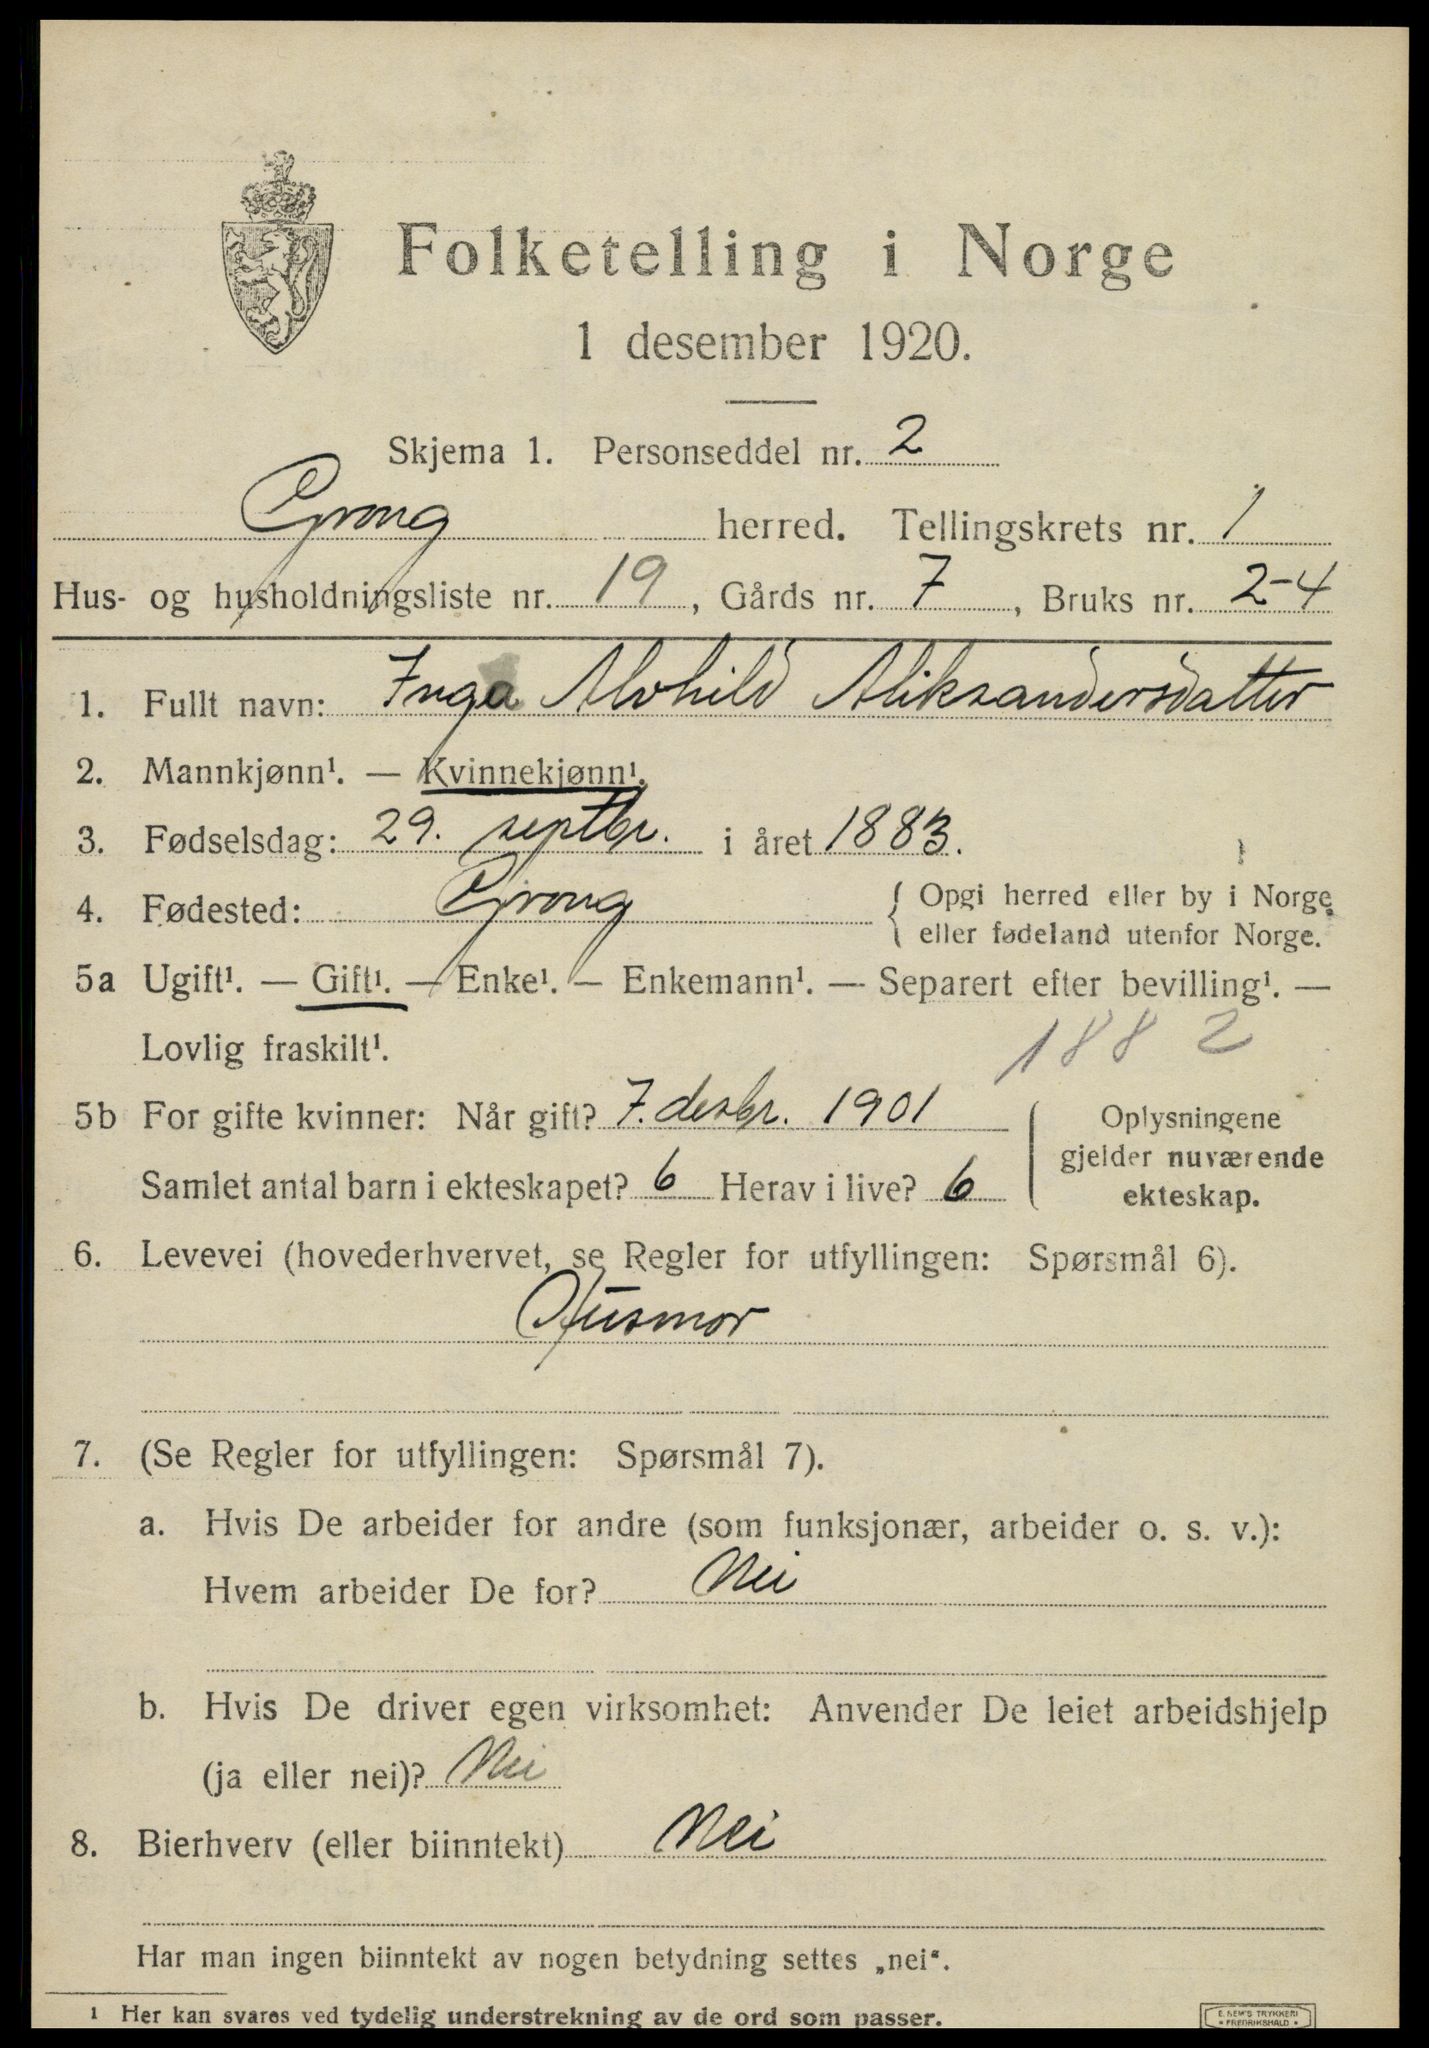 Folketelling i Norge
1 desember 1920.
Skjema 1. Personseddel nr. 2
Grong herred. Tellingskrets nr. 1
Hus- og husholdningsliste nr. 19, Gårds nr. 7, Bruks nr. 2-4
1. Fullt navn: Inga Alvhild Aliksandersdatter
2. Mannkjønn¹. — Kvinnekjønn¹.
3. Fødselsdag: 29. septbr. i året 1883.
4. Fødested: Grong { Opgi herred eller by i Norge
eller fødeland utenfor Norge.
5a Ugift¹. — Gift¹. — Enke¹. — Enkemann¹. — Separert efter bevilling¹. —
Lovlig fraskilt¹.
1882
5b For gifte kvinner: Når gift? 7. desbr. 1901
Samlet antal barn i ekteskapet? 6 Herav i live? 6
Oplysningene
gjelder nuværende
ekteskap.
6. Levevei (hovederhvervet, se Regler for utfyllingen: Spørsmål 6).
Husmor
7. (Se Regler for utfyllingen: Spørsmål 7).
a. Hvis De arbeider for andre (som funksjonær, arbeider o. s. v.):
Hvem arbeider De for? Nei
b. Hvis De driver egen virksomhet: Anvender De leiet arbeidshjelp
(ja eller nei)? Nei
8. Bierhverv (eller biinntekt) Nei
Har man ingen biinntekt av nogen betydning settes „nei“.
¹ Her kan svares ved tydelig understrekning av de ord som passer.
E. SEM'S TRYKKERI
• FREDRIKSHALD •